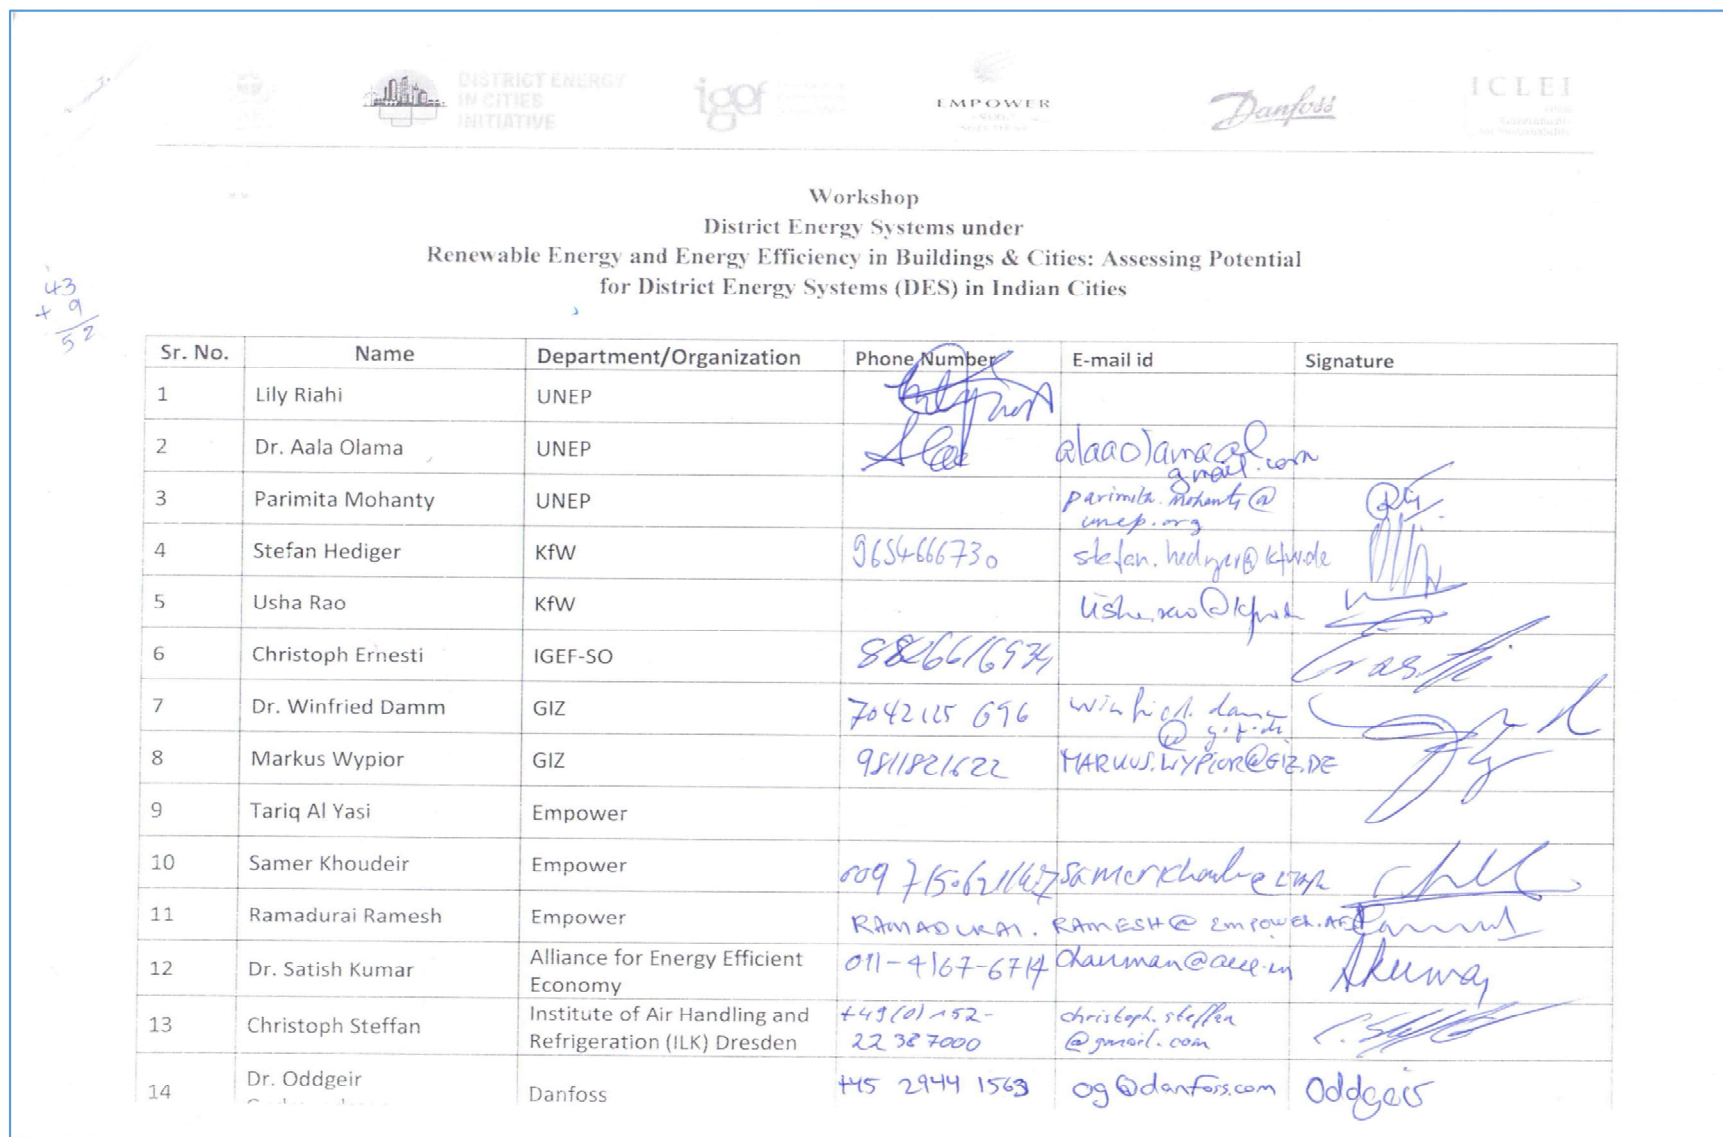 DISTRICT ENERGY
IN CITIES
INITIATIVE
igef
EMPOWER
Danfoss
ICLEI
Workshop
District Energy Systems under
Renewable Energy and Energy Efficiency in Buildings & Cities: Assessing Potential
for District Energy Systems (DES) in Indian Cities
43
+ 9
52
Sr. No. Name Department/Organization Phone Number E-mail id Signature
1 Lily Riahi UNEP
2 Dr. Aala Olama UNEP
gmail.com
3 Parimita Mohanty UNEP parimita.mohanty@
unep.org
4 Stefan Hediger KfW 9654666730 stefan.hediger@kfw.de
5 Usha Rao KfW
6 Christoph Ernesti IGEF-SO
7 Dr. Winfried Damm GIZ 7042125 696 winfried.damm
@giz.de
8 Markus Wypior GIZ 9811821622 MARKUS.WYPIOR@GIZ.DE
9 Tariq Al Yasi Empower
10 Samer Khoudeir Empower
11 Ramadurai Ramesh Empower RAMADURAI.RAMESH@EMPOWER.AE
12 Dr. Satish Kumar Alliance for Energy Efficient 011-4167-6714 Chairman@aeee.in
Economy
13 Christoph Steffan Institute of Air Handling and +49(0)152- christoph.steffan
Refrigeration (ILK) Dresden 22387000 @gmail.com
14 Dr. Oddgeir Danfoss +45 2944 1563 og@danfoss.com Oddgeir